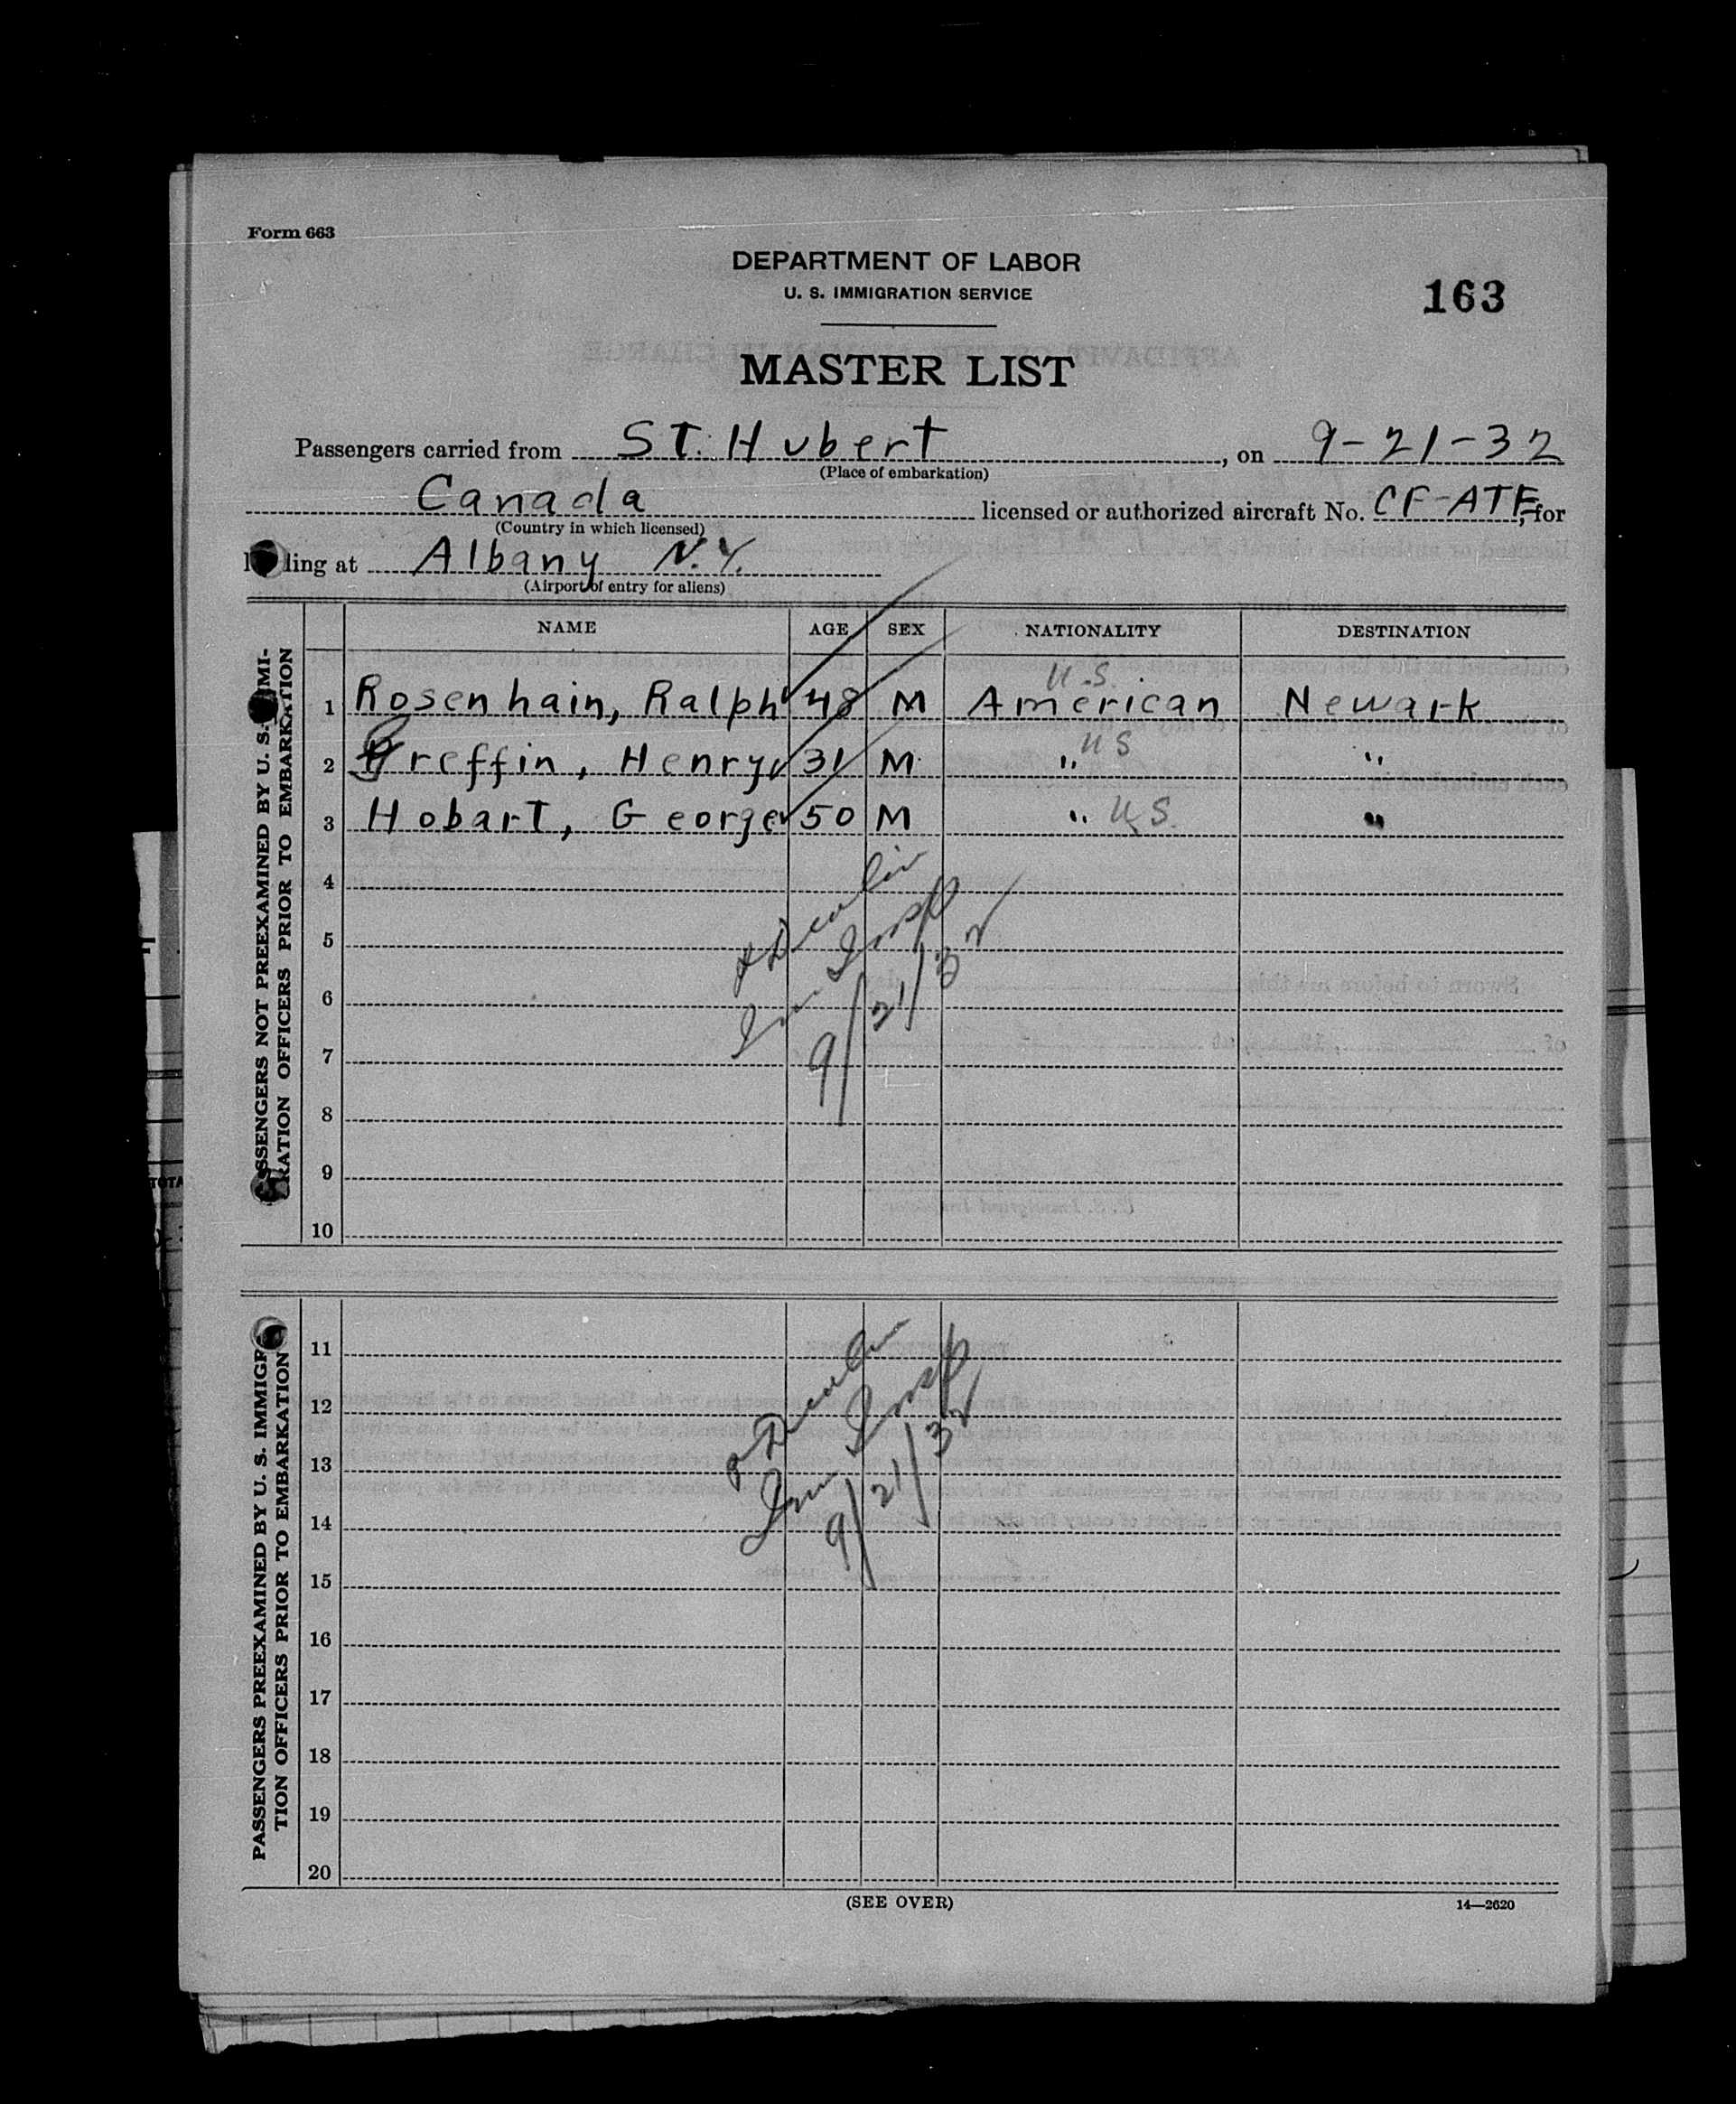 Form 663
DEPARTMENT OF LABOR
U. S. IMMIGRATION SERVICE
163
MASTER LIST
Passengers carried from St. Hubert, on 9-21-32
(Place of embarkation)
Canada licensed or authorized aircraft No. CF-ATF, for
(Country in which licensed)
ling at Albany N.Y.
(Airport of entry for aliens)
NAME AGE SEX NATIONALITY DESTINATION
U.S.
1 Rosenhain, Ralph 48 M American Newark
U S
2 Greffin, Henry 31 M " "
3 Hobart, George 50 M " U.S. "
4
5
6
7
8
9
10
9/21/32
SSENGERS NOT PREEXAMINED BY U. S. IMMI-
RATION OFFICERS PRIOR TO EMBARKATION
11
12
13
14
15
16
17
18
19
20
9/21/32
PASSENGERS PREEXAMINED BY U. S. IMMIGR
TION OFFICERS PRIOR TO EMBARKATION
(SEE OVER)
14—2620